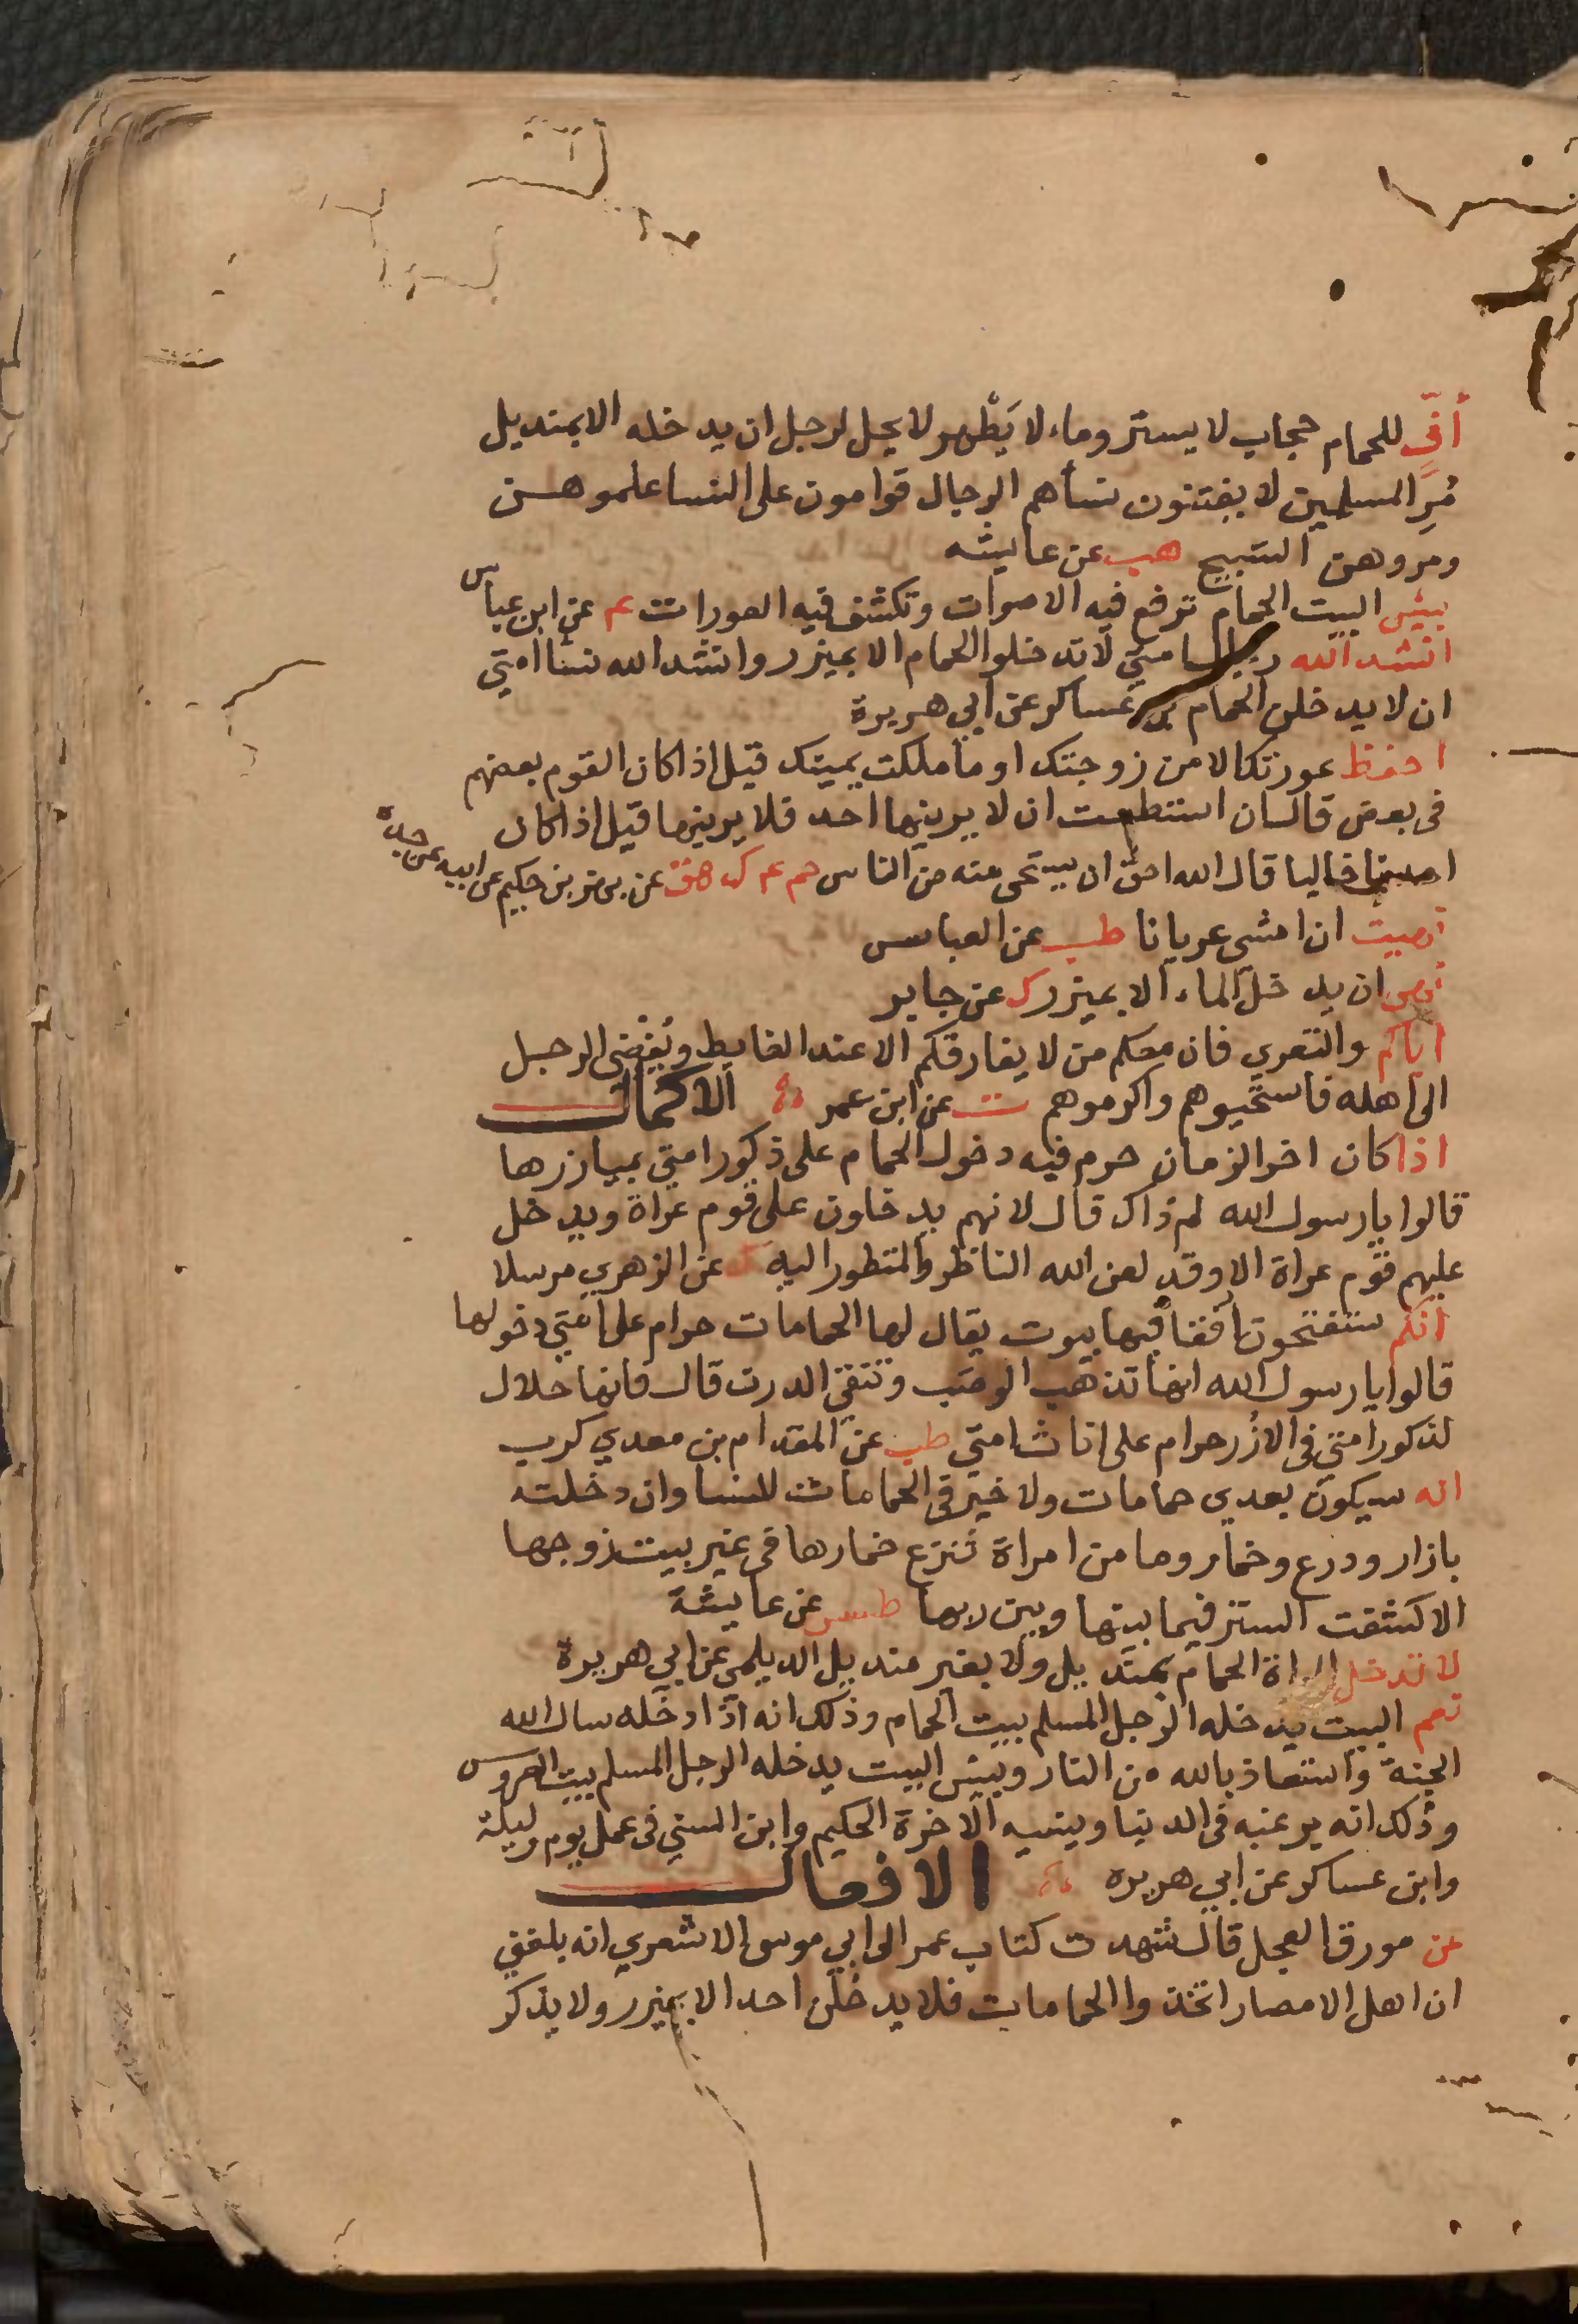 أفّ للحمام حجاب لا يستر وماء لا يَطْهر لا يحل لرجل ان يدخله الا بمنديل
مُرِ المسلمين لا يفتنون نسأهم الرجال قوامون على النسا علموهن
ومروهن التسبيح هب عن عايشه
بيئس البيت الحمام ترفع فيه الاصوات وتكشف فيه العورات عد عن ابن عباس
انشد الله رجال امتي لا تدخلوا الحمام الا بميزر وانشد الله نسا امتي
ان لا يدخلن الحمام عساكر عن ابي هريرة
احفظ عورتك الا من زوجتك او ما ملكت يمينك قيل اذا كان القوم بعضهم
في بعض قال ان استطعت ان لا يرينها احد فلا يرينها قيل اذا كان
احدنا خاليا قال الله احق ان يستحى منه من الناس حم عد ك هق عن بهز بن حكيم عن ابيه عن جده
نهيت ان امشي عريانا طب عن العباس
نهى ان يدخل الماء الا بميزر ك عن جابر
اياكم والتعري فان معكم من لا يفارقكم الا عند الغايط ويُفْضى الرجل
الى اهله فاستحيوهم واكرموهم ت عن ابن عمر الاكمال
اذا كان اخر الزمان حرم فيه دخول الحمام على ذكور امتي بميازرها
قالوا يا رسول الله لم ذاك قال لانهم يدخلون على قوم عراة ويدخل
عليهم قوم عراة الا وقد لعن الله الناظر والمنظور اليه كر عن الزهري مرسلا
انكم ستفتحون أفقا فيها بيوت يقال لها الحمامات حرام على امتي دخولها
قالوا يا رسول الله انها تذهب الوصب وتنقي الدرن قال فانها حلال
لذكور امتي في الازُر حرام على اناث امتي طب عن المقدام بن معدي كرب
انه سيكون بعدي حمامات ولا خير في الحمامات للنسا وان دخلته
بازار ودرع وخمار وما من امراة تنزع خمارها في غير بيت زوجها
الا كشفت الستر فيما بينها وبين ربها طس عن عايشة
لا تدخل المراة الحمام بمنديل ولا بغير منديل الديلمي عن ابي هريرة
نعم البيت يدخله الرجل المسلم بيت الحمام وذلك انه اذا دخله سال الله
الجنة واستعاذ بالله من النار وبيئس البيت يدخله الرجل المسلم بيت العروس
وذلك انه يرغبه في الدنيا وينسيه الاخرة الحكيم وابن السني في عمل يوم وليلة
وابن عساكر عن ابي هريره الافعال
عن مورق العجل قال شهدت كتاب عمر الى ابي موسى الاشعري انه بلغني
ان اهل الامصار اتخذوا الحمامات فلا يدخلن احد الا بميزر ولا يذكر